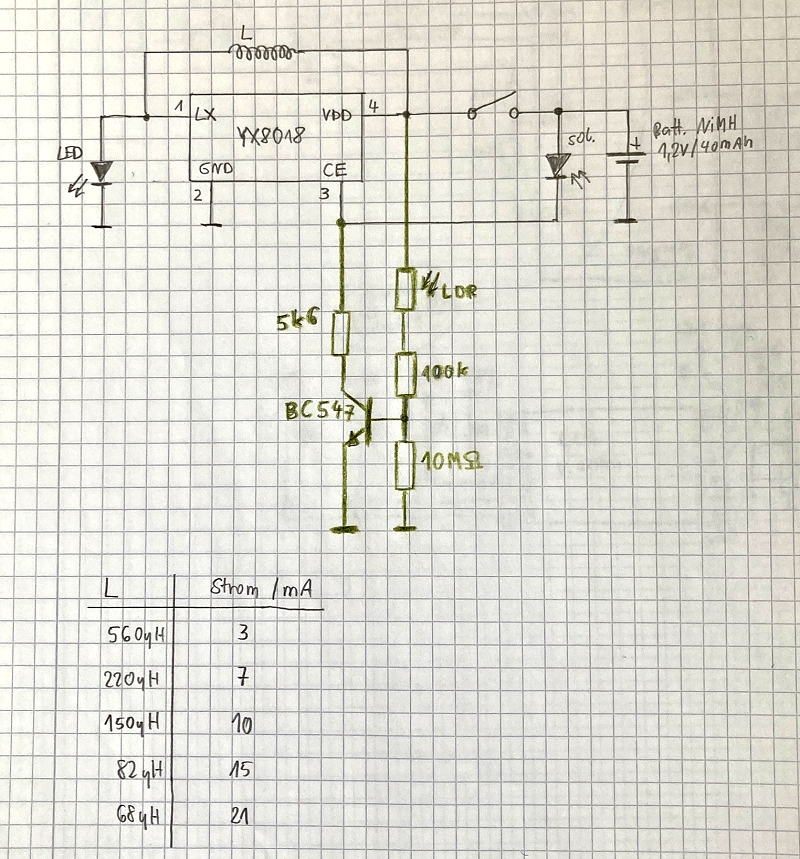 L
1 LX VDD 4
YX8018
LED
GND CE
2 3
sol.
+
Batt. NiMH
1,2V/40mAh
LDR
5k6
100k
BC547
10MΩ
L Strom /mA
560µH 3
220µH 7
150µH 10
82µH 15
68µH 21